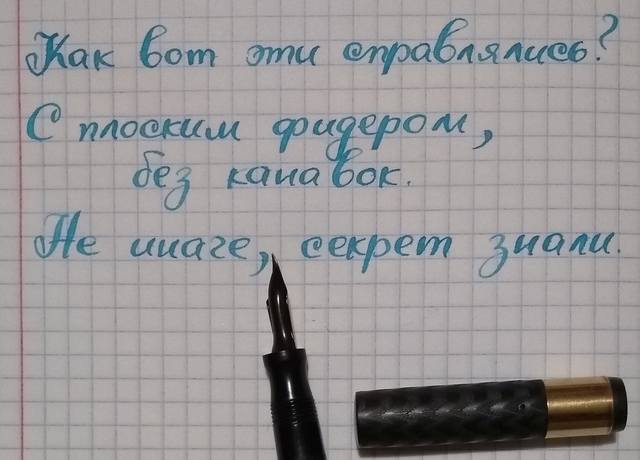 Как вот эти справлялись?
С плоским фидером,
без канавок.
Не иначе, секрет знали.